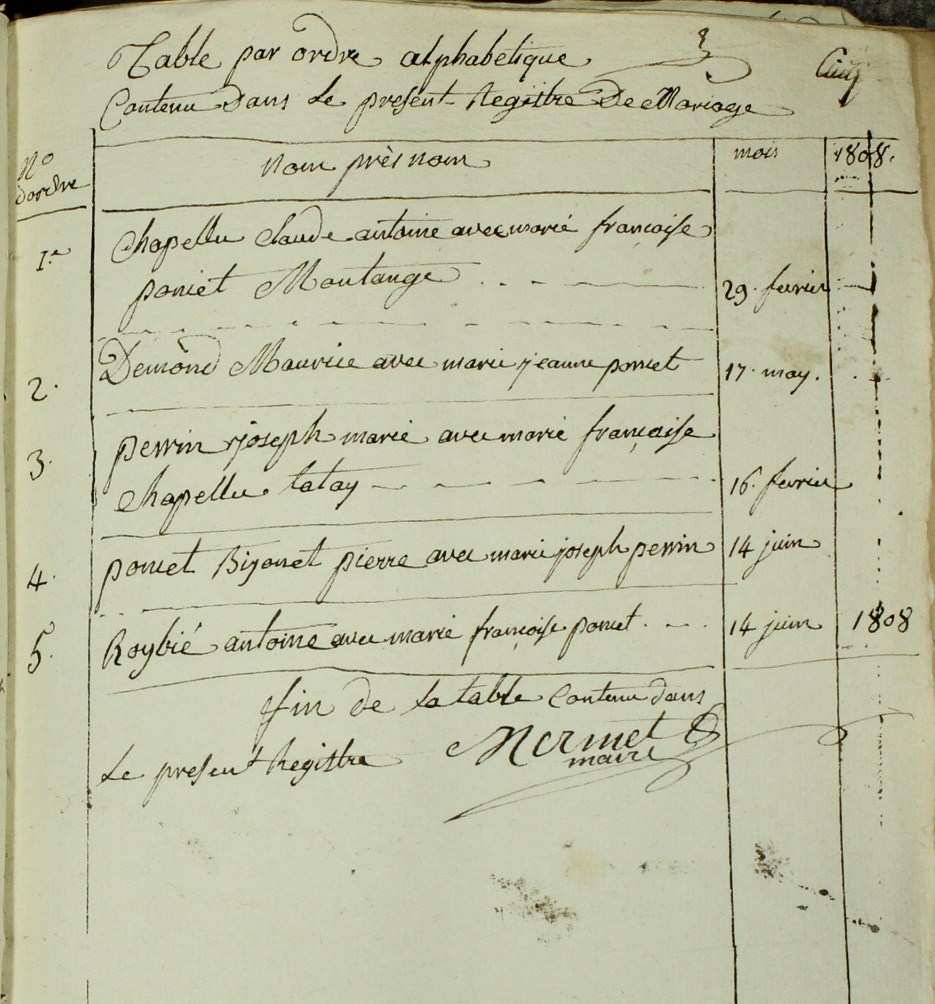 Table par ordre alphabetique
Cinq
Contenu Dans Le present Registre De Mariage
No d'ordre
nom près nom
mois
1808.
1er
Chapellu Claude antoine avec marie françoise
poncet Montange
29. fevrier
2.
Demond Maurice avec marie jeanne poncet
17. may.
3.
perrin joseph marie avec marie françoise
Chapellu tatay
16. fevrier
4.
poncet Bizonet pierre avec marie joseph perrin
14 juin
5.
Roybié antoine avec marie françoise poncet
14 juin
1808
fin de La table Contenu dans
Le present Registre
Mermet
maire